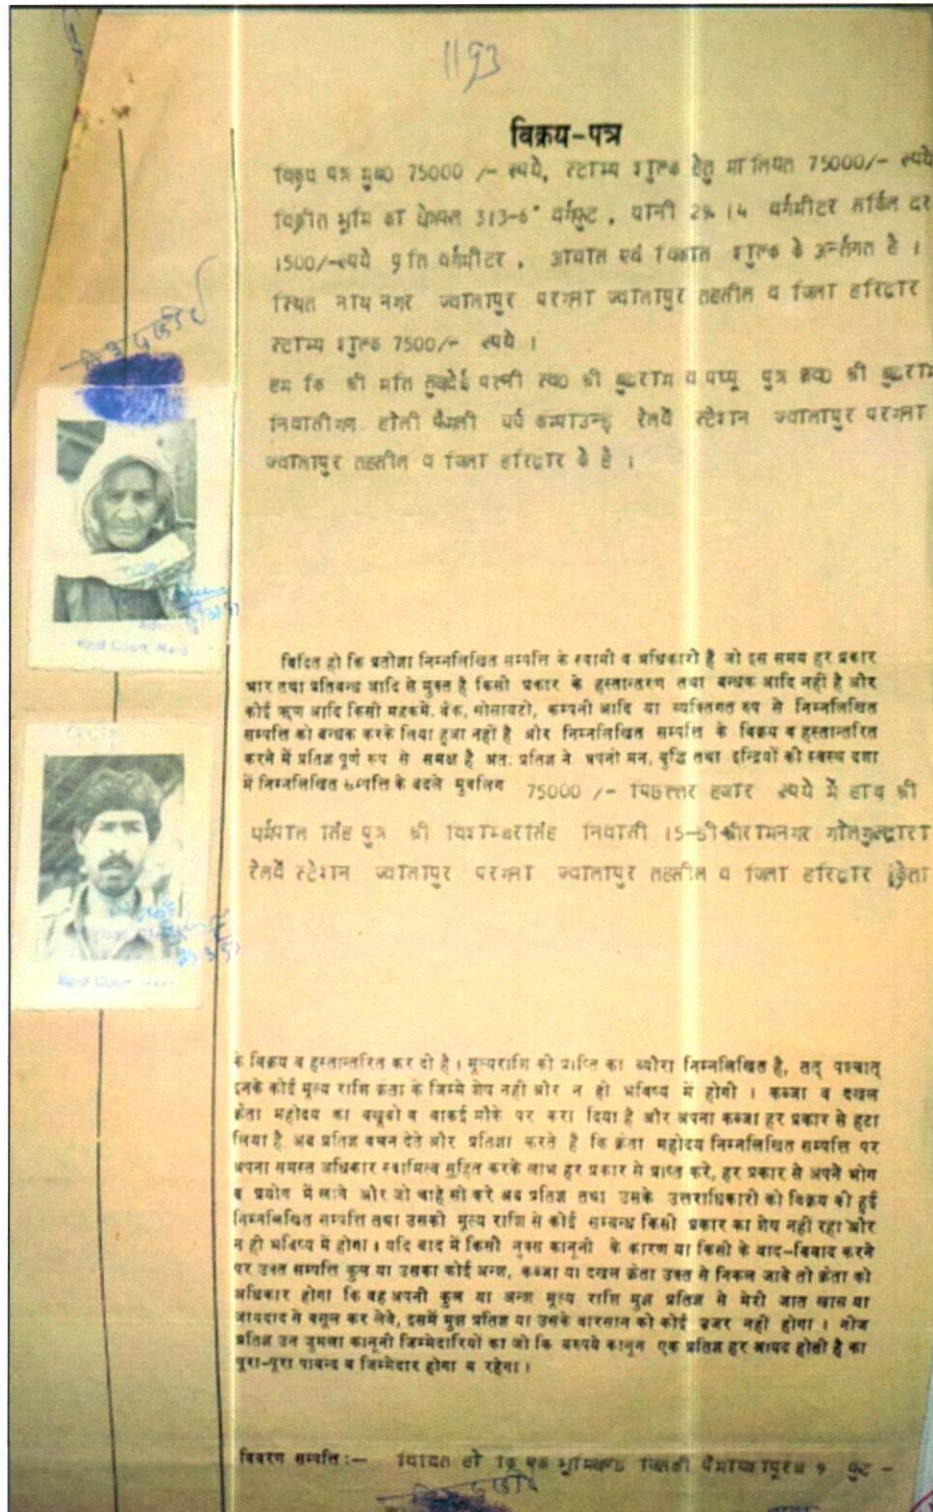 1193
विक्रय-पत्र
विक्रय पत्र मु0 75000 /- रूपये, स्टाम्प शुल्क हेतु मालियत 75000/- रूपये
विक्रीत भूमि का क्षेत्रफल 313-6" वर्गफुट, यानी 29.14 वर्गमीटर सर्किल दर
1500/-रूपये प्रति वर्गमीटर, आवास एवं विकास शुल्क के अर्न्तगत है।
स्थित नाथ नगर ज्वालापुर परगना ज्वालापुर तहसील व जिला हरिद्वार
स्टाम्प शुल्क 7500/- रूपये।
हम कि श्री मति पत्नी स्व0 श्री बुद्धराम व पप्पू पुत्र स्व0 श्री बुद्धराम
निवासीगण होली फैमली चर्च कम्पाउन्ड रेलवे स्टेशन ज्वालापुर परगना
ज्वालापुर तहसील व जिला हरिद्वार के है।
विदित हो कि प्रतीज्ञा निम्नलिखित सम्पत्ति के स्वामी व अधिकारी हैं जो इस समय हर प्रकार
भार तथा प्रतिबन्ध आदि से मुक्त है किसी प्रकार के हस्तान्तरण तथा बन्धक आदि नहीं है और
कोई ऋण आदि किसी महकमें, बैंक, सोसायटी, कम्पनी आदि या व्यक्तिगत रुप से निम्नलिखित
सम्पत्ति को बन्धक करके लिया हुआ नहीं है और निम्नलिखित सम्पत्ति के विक्रय व हस्तान्तरित
करने में प्रतिज्ञ पूर्ण रूप से समक्ष है अत: प्रतिज्ञ ने अपनी मन, बुद्धि तथा इन्द्रियों की स्वस्थ दशा
में निम्नलिखित सम्पत्ति के बदले मुबलिग 75000 /- पिछत्तर हजार रूपये में हाथ श्री
धर्मपाल सिंह पुत्र श्री विशम्बरसिंह निवासी 15-सी श्रीरामनगर गोलगुरूद्वारा
रेलवे स्टेशन ज्वालापुर परगना ज्वालापुर तहसील व जिला हरिद्वार क्रेता
के विक्रय व हस्तान्तरित कर दी है। मूल्यराशि की प्राप्ति का ब्यौरा निम्नलिखित है, तद् पश्चात्
इनके कोई मूल्य राशि क्रेता के जिम्मे शेष नही और न ही भविष्य में होगी। कब्जा व दखल
क्रेता महोदय का बखूबी व वाकई मौके पर करा दिया है और अपना कब्जा हर प्रकार से हटा
लिया है अब प्रतिज्ञ वचन देते और प्रतिज्ञा करते हैं कि क्रेता महोदय निम्नलिखित सम्पत्ति पर
अपना समस्त अधिकार स्वामित्व सहित करके लाभ हर प्रकार से प्राप्त करे, हर प्रकार से अपने भोग
व प्रयोग में लावे और जो चाहे सो करे अब प्रतिज्ञ तथा उसके उत्तराधिकारी को विक्रय की हुई
निम्नलिखित सम्पत्ति तथा उसकी मूल्य राशि से कोई सम्बन्ध किसी प्रकार का शेष नही रहा और
न ही भविष्य में होगा। यदि बाद में किसी नुक्स कानूनी के कारण या किसी के वाद-विवाद करने
पर उक्त सम्पत्ति कुल या उसका कोई अन्श, कब्जा या दखल क्रेता उक्त से निकल जावे तो क्रेता को
अधिकार होगा कि वह अपनी कुल या अन्श मूल्य राशि मुझ प्रतिज्ञ से मेरी जात खास या
जायदाद से वसूल कर लेवे, इसमें मुझ प्रतिज्ञ या उसके वारसान को कोई उजर नहीं होगा। नीज
प्रतिज्ञ उन जुमला कानूनी जिम्मेदारियों का जो कि बरुपये कानून एक प्रतिज्ञ हर आयद होती है का
पूरा-पूरा पाबन्द व जिम्मेदार होगा व रहेगा।
विवरण सम्पत्ति:- विदित हो कि एक भूमिखण्ड जिसकी पैमाइश पूरब 9 फुट -